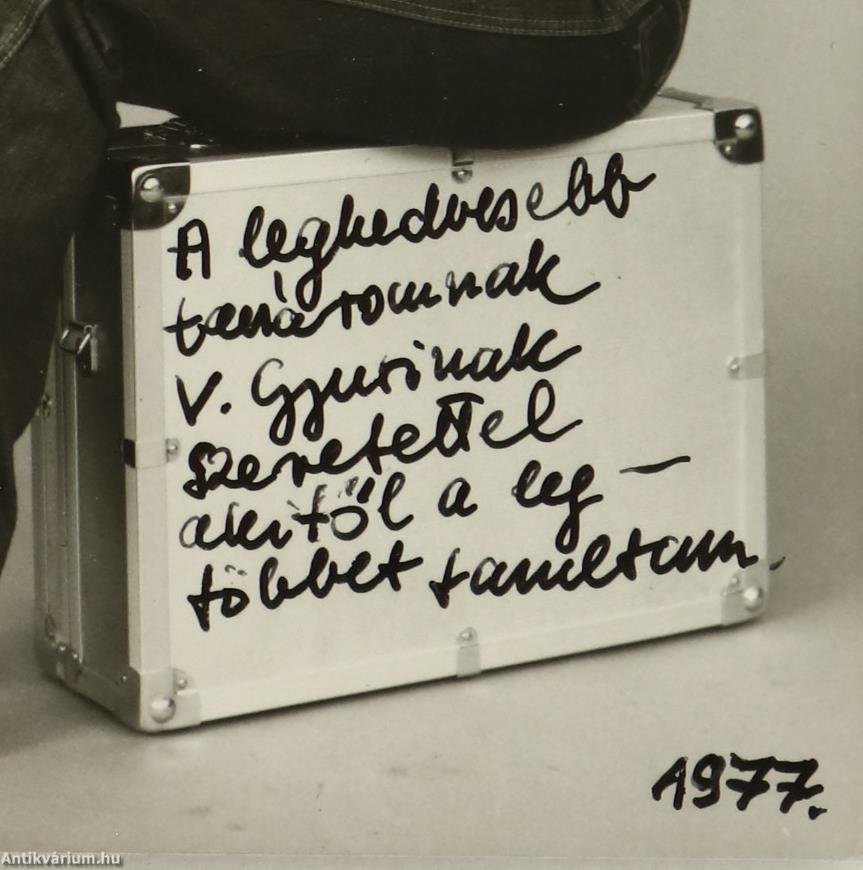 A legkedvesebb
tanáromnak
V. Gyurinak
szeretettel
akitől a leg —
többet tanultam.
1977.
Antikvárium.hu